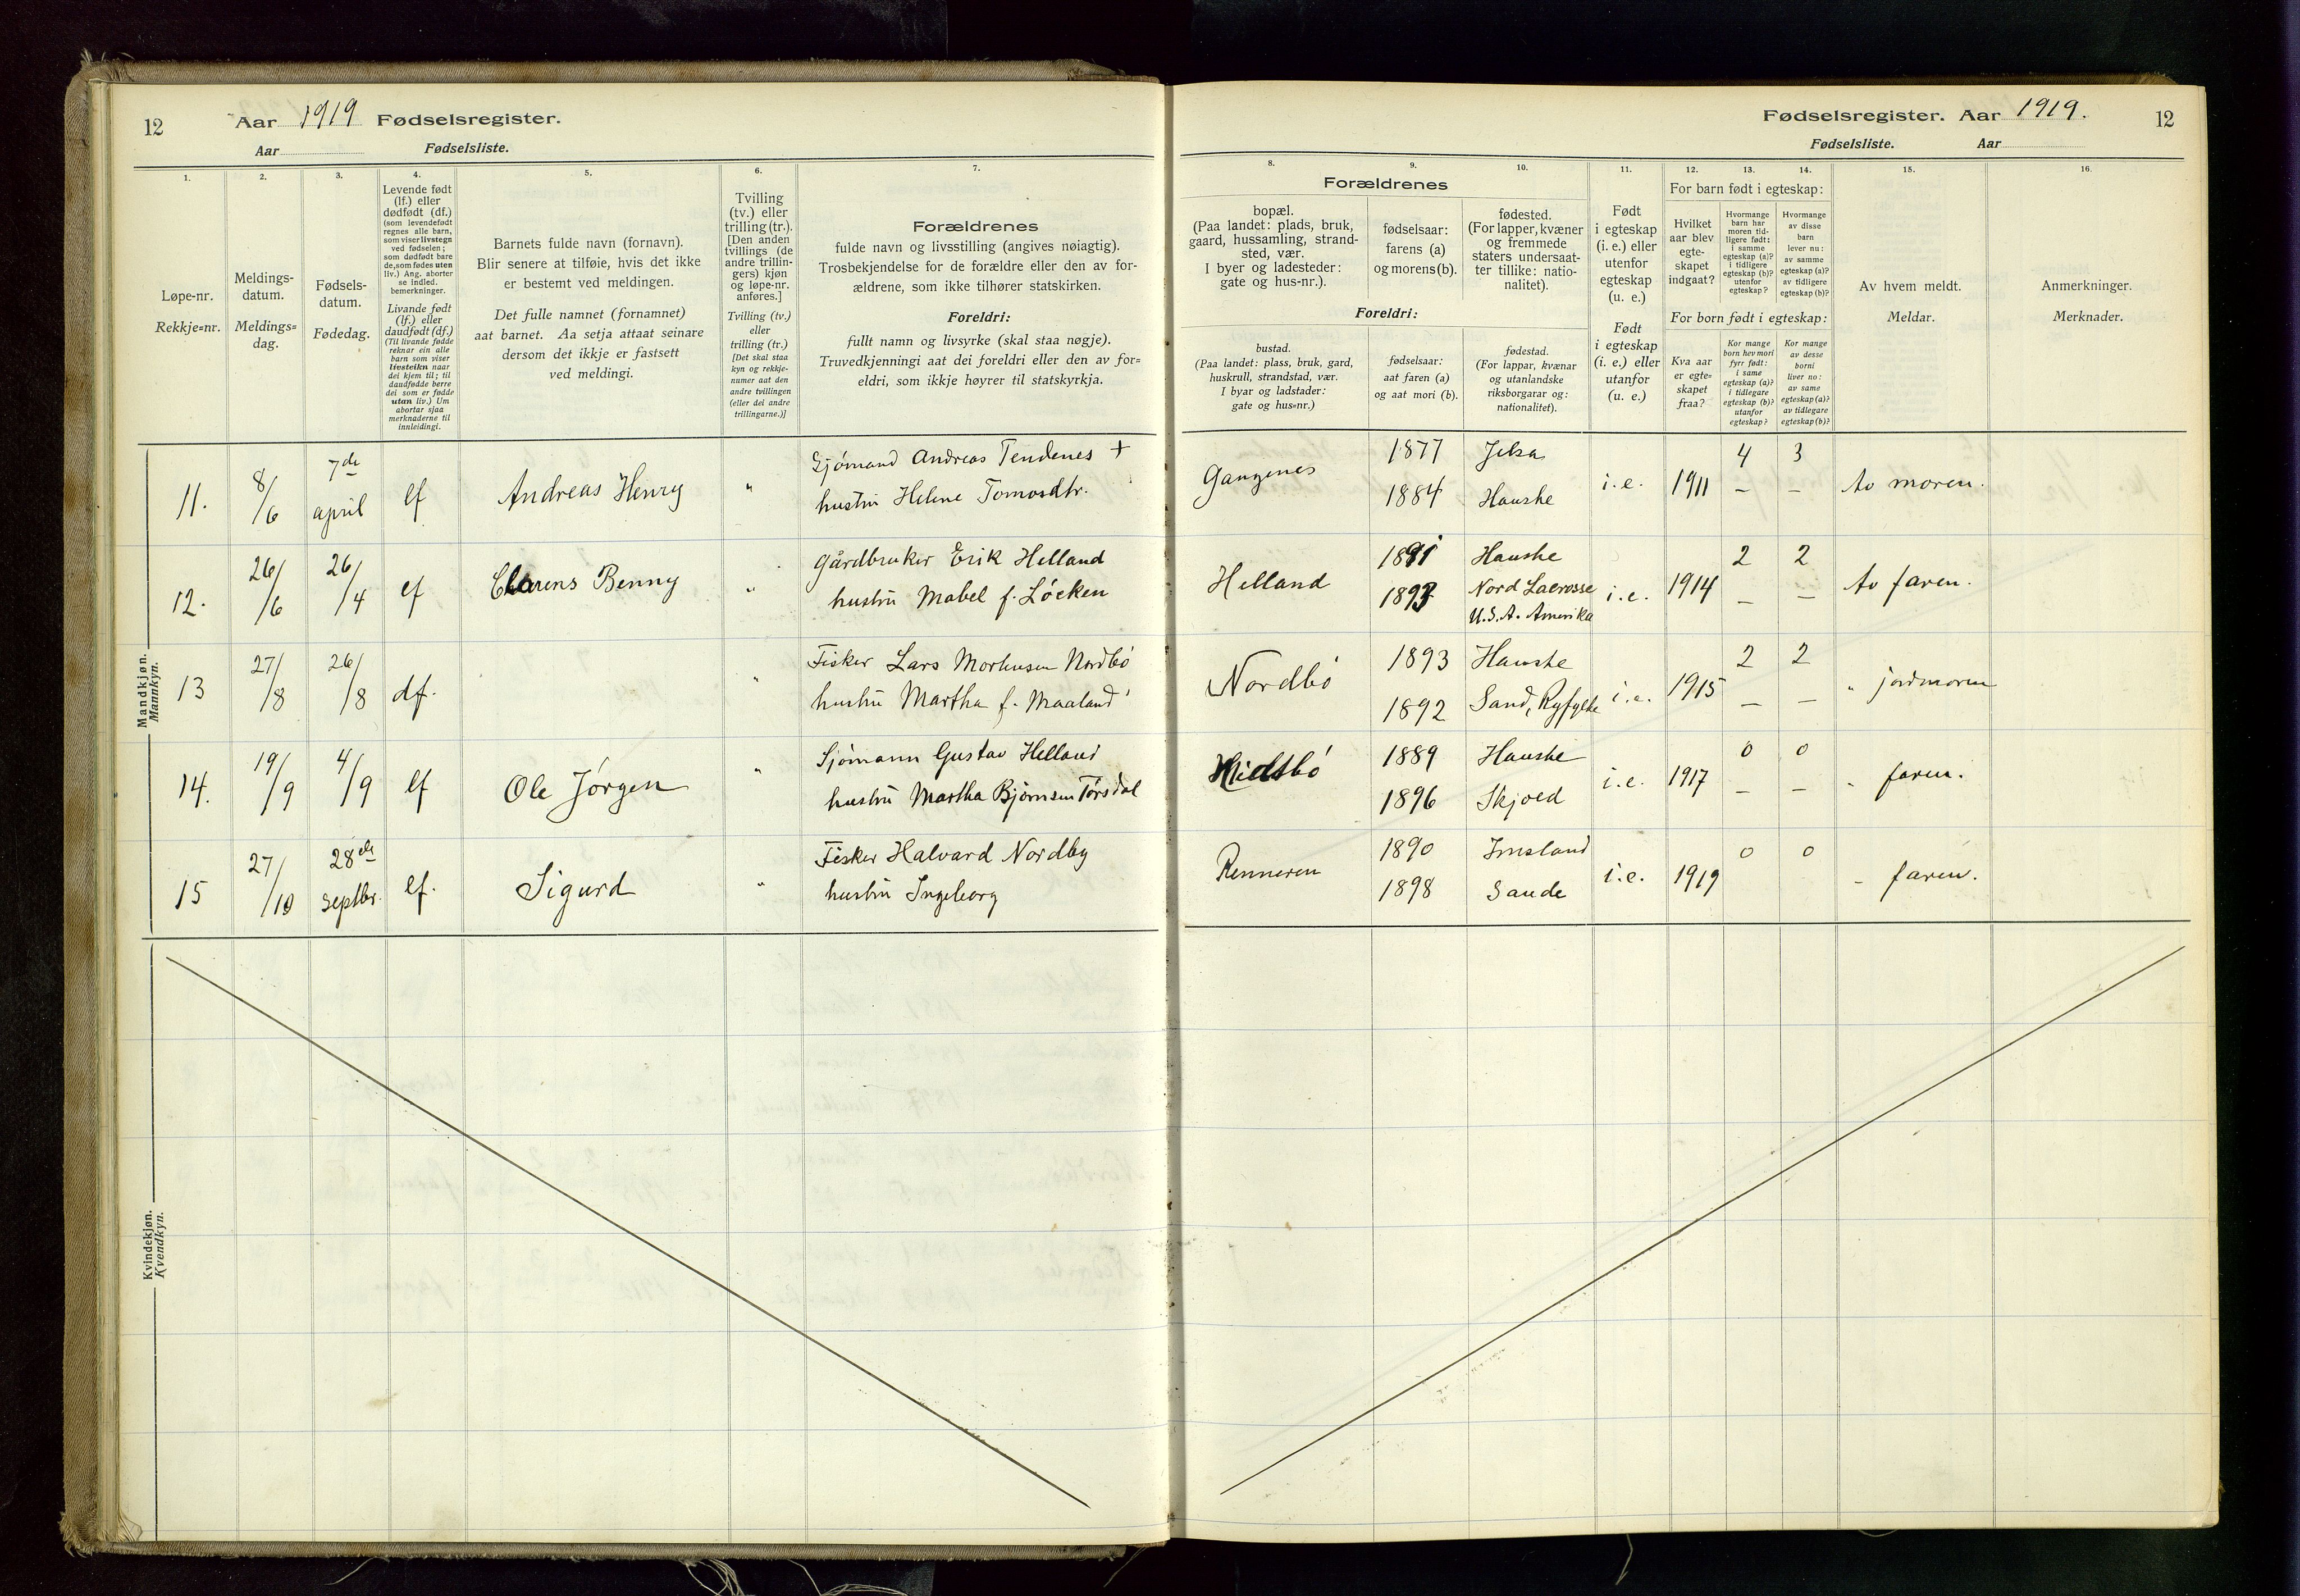 12 Aar 1919 Fødselsregister.
Aar Fødselsliste.
1. 2. 3. 4. 5. 6. 7.
Løpe-nr.
Rekkje=nr.
Meldings-
datum.
Meldings=
dag.
Fødsels-
datum.
Fødedag.
Levende født
(lf.) eller
dødfødt (df.)
(som levendefødt
regnes alle barn,
som viser livstegn
ved fødselen;
som dødfødt bare
de, som fødes uten
liv.) Ang. aborter
se indled.
bemerkninger.
Livande født
(lf.) eller
daudfødt (df.)
(Til livande fødde
reknar ein alle
barn som viser
livsteikn naar
dei kjem til; til
daudfødde berre
dei som er fødde
utan liv.) Um
abortar sjaa
merknaderne til
innleidingi.
Barnets fulde navn (fornavn).
Blir senere at tilføie, hvis det ikke
er bestemt ved meldingen.
Det fulle namnet (fornamnet)
aat barnet. Aa setja attaat seinare
dersom det ikkje er fastsett
ved meldingi.
Tvilling
(tv.) eller
trilling (tr.).
[Den anden
tvillings (de
andre trillin-
gers) kjøn
og løpe-nr.
anføres.]
Tvilling (tv.)
eller
trilling (tr.)
[Det skal staa
kyn og rekkje-
numer aat den
andre tvillingen
(eller dei andre
trillingarne.)]
Forældrenes
fulde navn og livsstilling (angives nøiagtig).
Trosbekjendelse for de forældre eller den av for-
ældrene, som ikke tilhører statskirken.
Foreldri:
fullt namn og livsyrke (skal staa nøgje).
Truvedkjenningi aat dei foreldri eller den av for=
eldri, som ikkje høyrer til statskyrkja.
Mandkjøn.
Mannkyn.
11. 8/6 7de april lf Andreas Henry " Sjømand Andreas Tendenes +
hustru Helene Tomasdtr.
12. 26/6 26/4 lf Clarens Benny " Gårdbruker Erik Helland
hustru Mabel f. Løcken
13 27/8 26/8 df. " Fisker Lars Morhusen Nordbö
hustru Martha f. Maaland
14. 19/9 4/9 lf Ole Jørgen " Sjömann Gustav Helland
hustru Martha Bjørnsen Törsdal
15 27/10 28de septbr. lf. Sigurd " Fisker Halvard Nordby
hustru Ingeborg
Kvindekjøn.
Kvendkyn.
Fødselsregister. Aar 1919. 12
Fødselsliste. Aar
8. 9. 10. 11. 12. 13. 14. 15. 16.
Forældrenes
bopæl.
(Paa landet: plads, bruk,
gaard, hussamling, strand-
sted, vær.
I byer og ladesteder:
gate og hus-nr.).
fødselsaar:
farens (a)
og morens (b).
fødested.
(For lapper, kvæner
og fremmede
staters undersaat-
ter tillike: natio-
nalitet).
Foreldri:
bustad.
(Paa landet: plass, bruk, gard,
huskrull, strandstad, vær.
I byar og ladstader:
gate og hus=nr.)
fødselsaar:
aat faren (a)
og aat mori (b).
fødestad.
(For lappar, kvænar
og utanlandske
riksborgarar og:
nationalitet).
Født
i egteskap
(i. e.) eller
utenfor
egteskap
(u. e.)
Født
i egteskap
(i. e.) eller
utanfor
(u. e.)
For barn født i egteskap:
Hvilket
aar blev
egte-
skapet
indgaat?
Hvormange
barn har
moren tid-
ligere født:
i samme
egteskap (a)?
i tidligere
egteskap (b)?
utenfor
egteskap?
Hvormange
av disse
barn
lever nu:
av samme
egteskap (a)?
av tidligere
egteskap (b)?
For born født i egteskap:
Kva aar
er egte=
skapet
fraa?
Kor mange
born hev mori
fyrr født:
i same
egteskap (a)?
i tidlegare
egteskap (b)?
utanfor
egteskap?
Kor mange
av desse
borni
liver no:
av same
egteskap (a)?
av tidlegare
egteskap (b)?
Av hvem meldt.
Meldar.
Anmerkninger.
Merknader.
Gangenes 1877 Jelsa i.e. 1911 4 3 Av moren.
1884 Hauske — —
Helland 1891 Hauske i.e. 1914 2 2 Av faren.
1893 Nord Lacrosse — —
U.S.A. Amerika
Nordbö 1893 Hauske i.e. 1915 2 2 " jordmoren
1892 Sand, Ryfylke — —
Midtbö 1889 Hauske i.e. 1917 0 0 " faren.
1896 Skjold — —
Renneren 1890 Imsland i.e. 1919 0 0 " faren.
1898 Saude